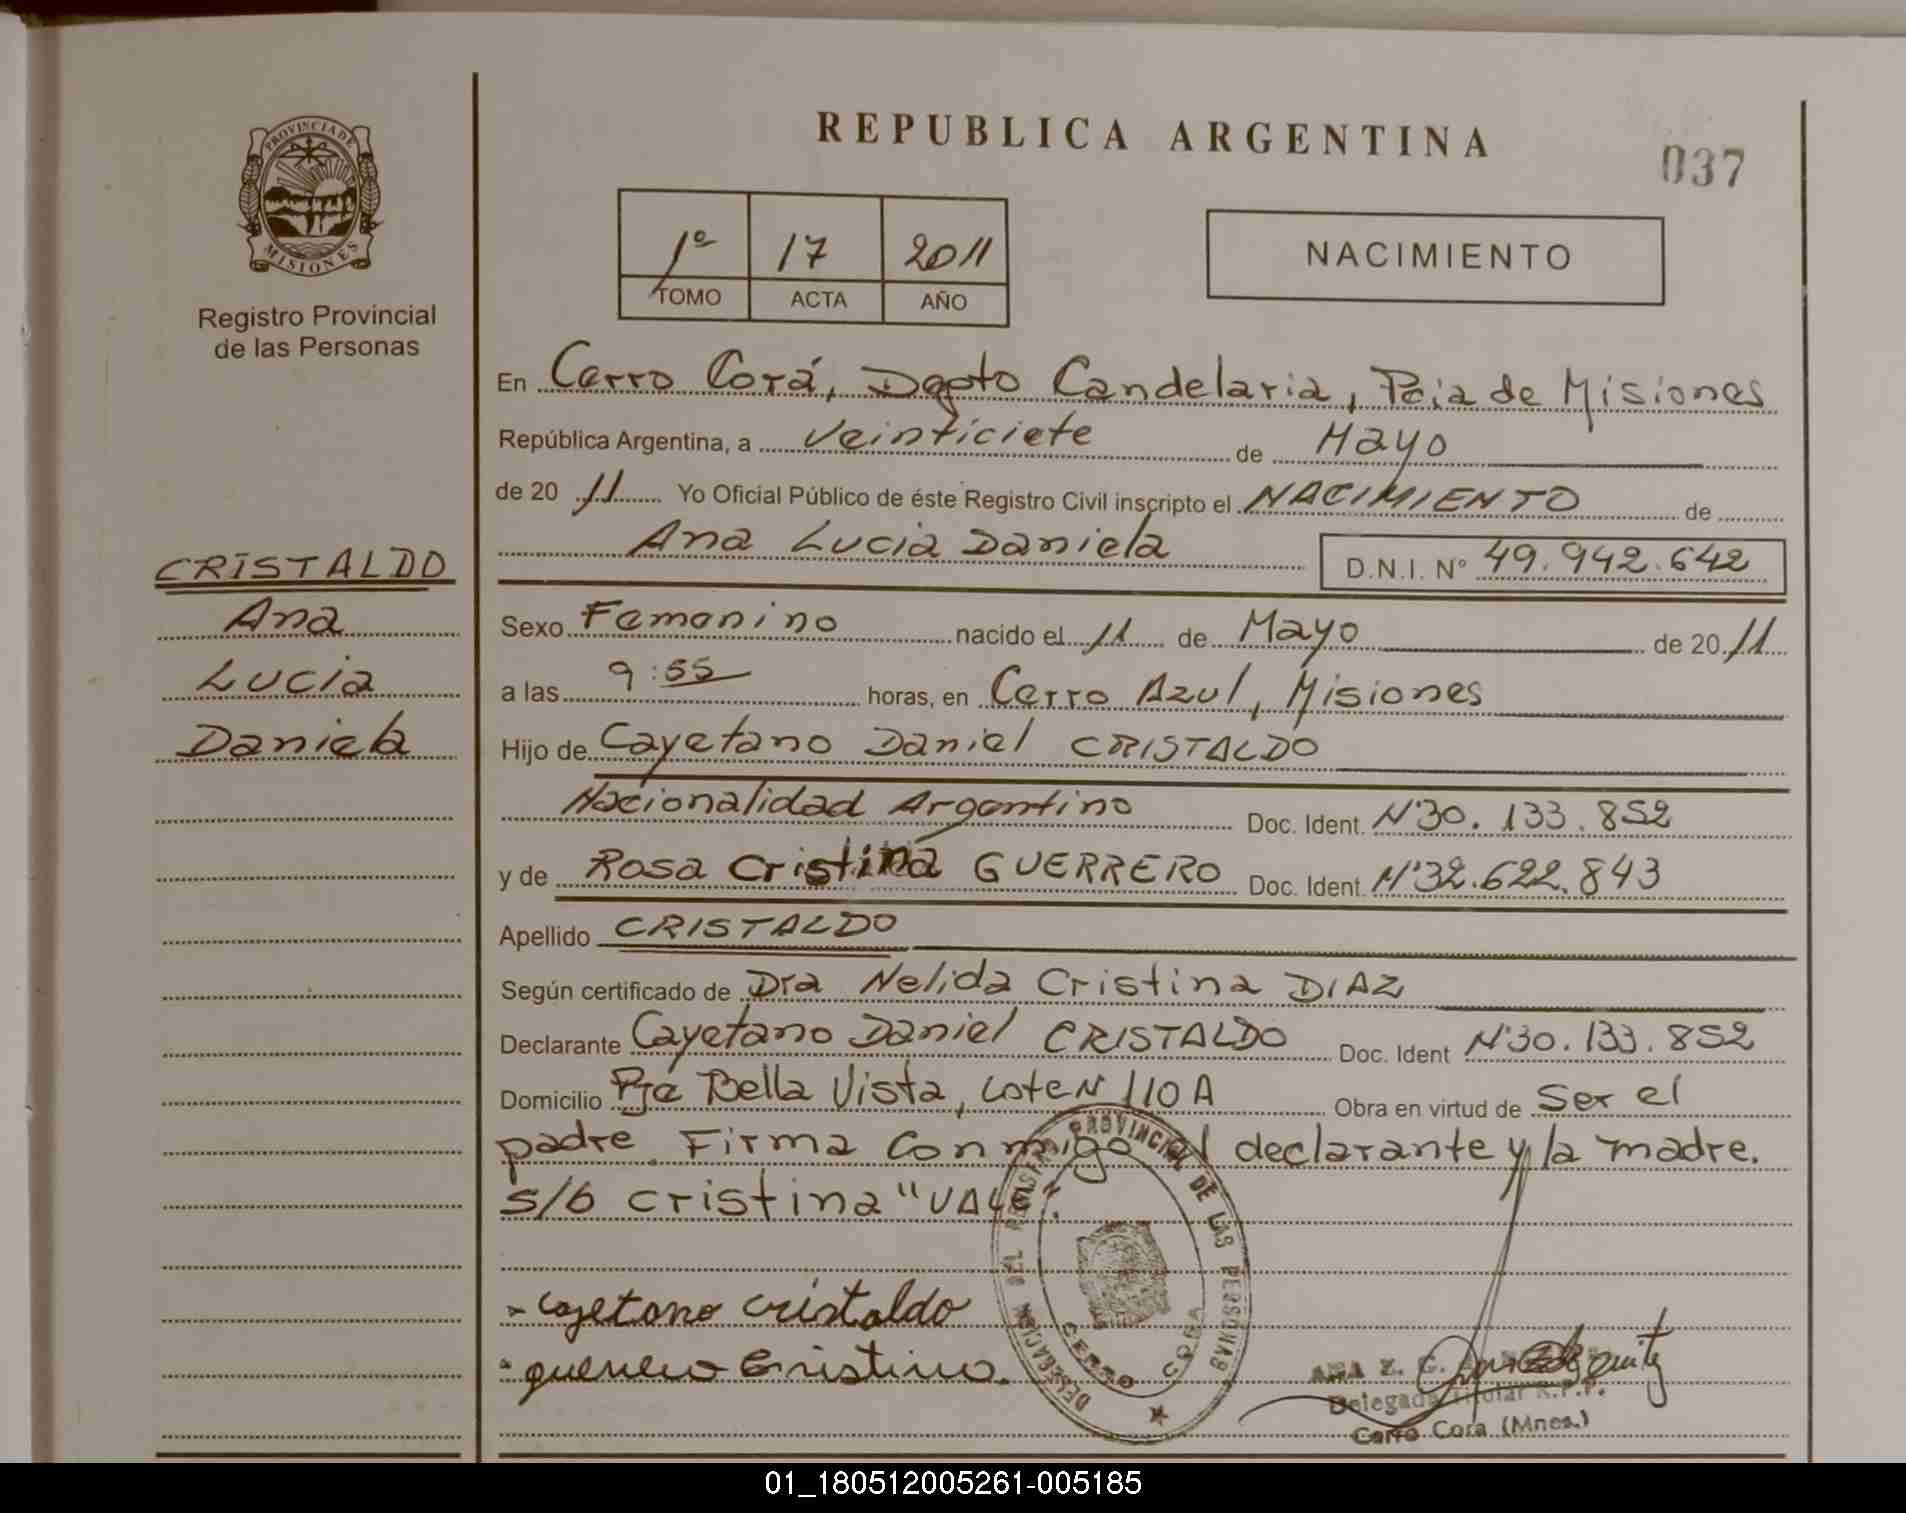 REPUBLICA ARGENTINA
037
PROVINCIA DE
MISIONES
Registro Provincial
de las Personas
1º 17 2011
TOMO ACTA AÑO
NACIMIENTO
En Cerro Corá, Dpto Candelaria, Pcia de Misiones
República Argentina, a veinticiete de Mayo
de 20 11 Yo Oficial Público de éste Registro Civil inscripto el NACIMIENTO de
Ana Lucia Daniela
D.N.I. Nº 49.942.642
CRISTALDO
Ana
Lucia
Daniela
Sexo Femenino nacido el 11 de Mayo de 20 11
a las 9:55 horas, en Cerro Azul, Misiones
Hijo de Cayetano Daniel CRISTALDO
Nacionalidad Argentino Doc. Ident. Nº30.133.852
y de Rosa Cristina GUERRERO Doc. Ident. Nº32.622.843
Apellido CRISTALDO
Según certificado de Dra Nelida Cristina DIAZ
Declarante Cayetano Daniel CRISTALDO Doc. Ident Nº30.133.852
Domicilio Pje Bella Vista, Lote N 110 A Obra en virtud de Ser el
padre. Firma conmigo el declarante y la madre.
s/b cristina "VALE".
DELEGACION DEL REGISTRO PROVINCIAL DE LAS PERSONAS
CERRO CORA
cayetano cristaldo
guerrero Cristina.
ANA Z. G.
Delegada Titular R.P.P.
Cerro Cora (Mnes.)
01_180512005261-005185